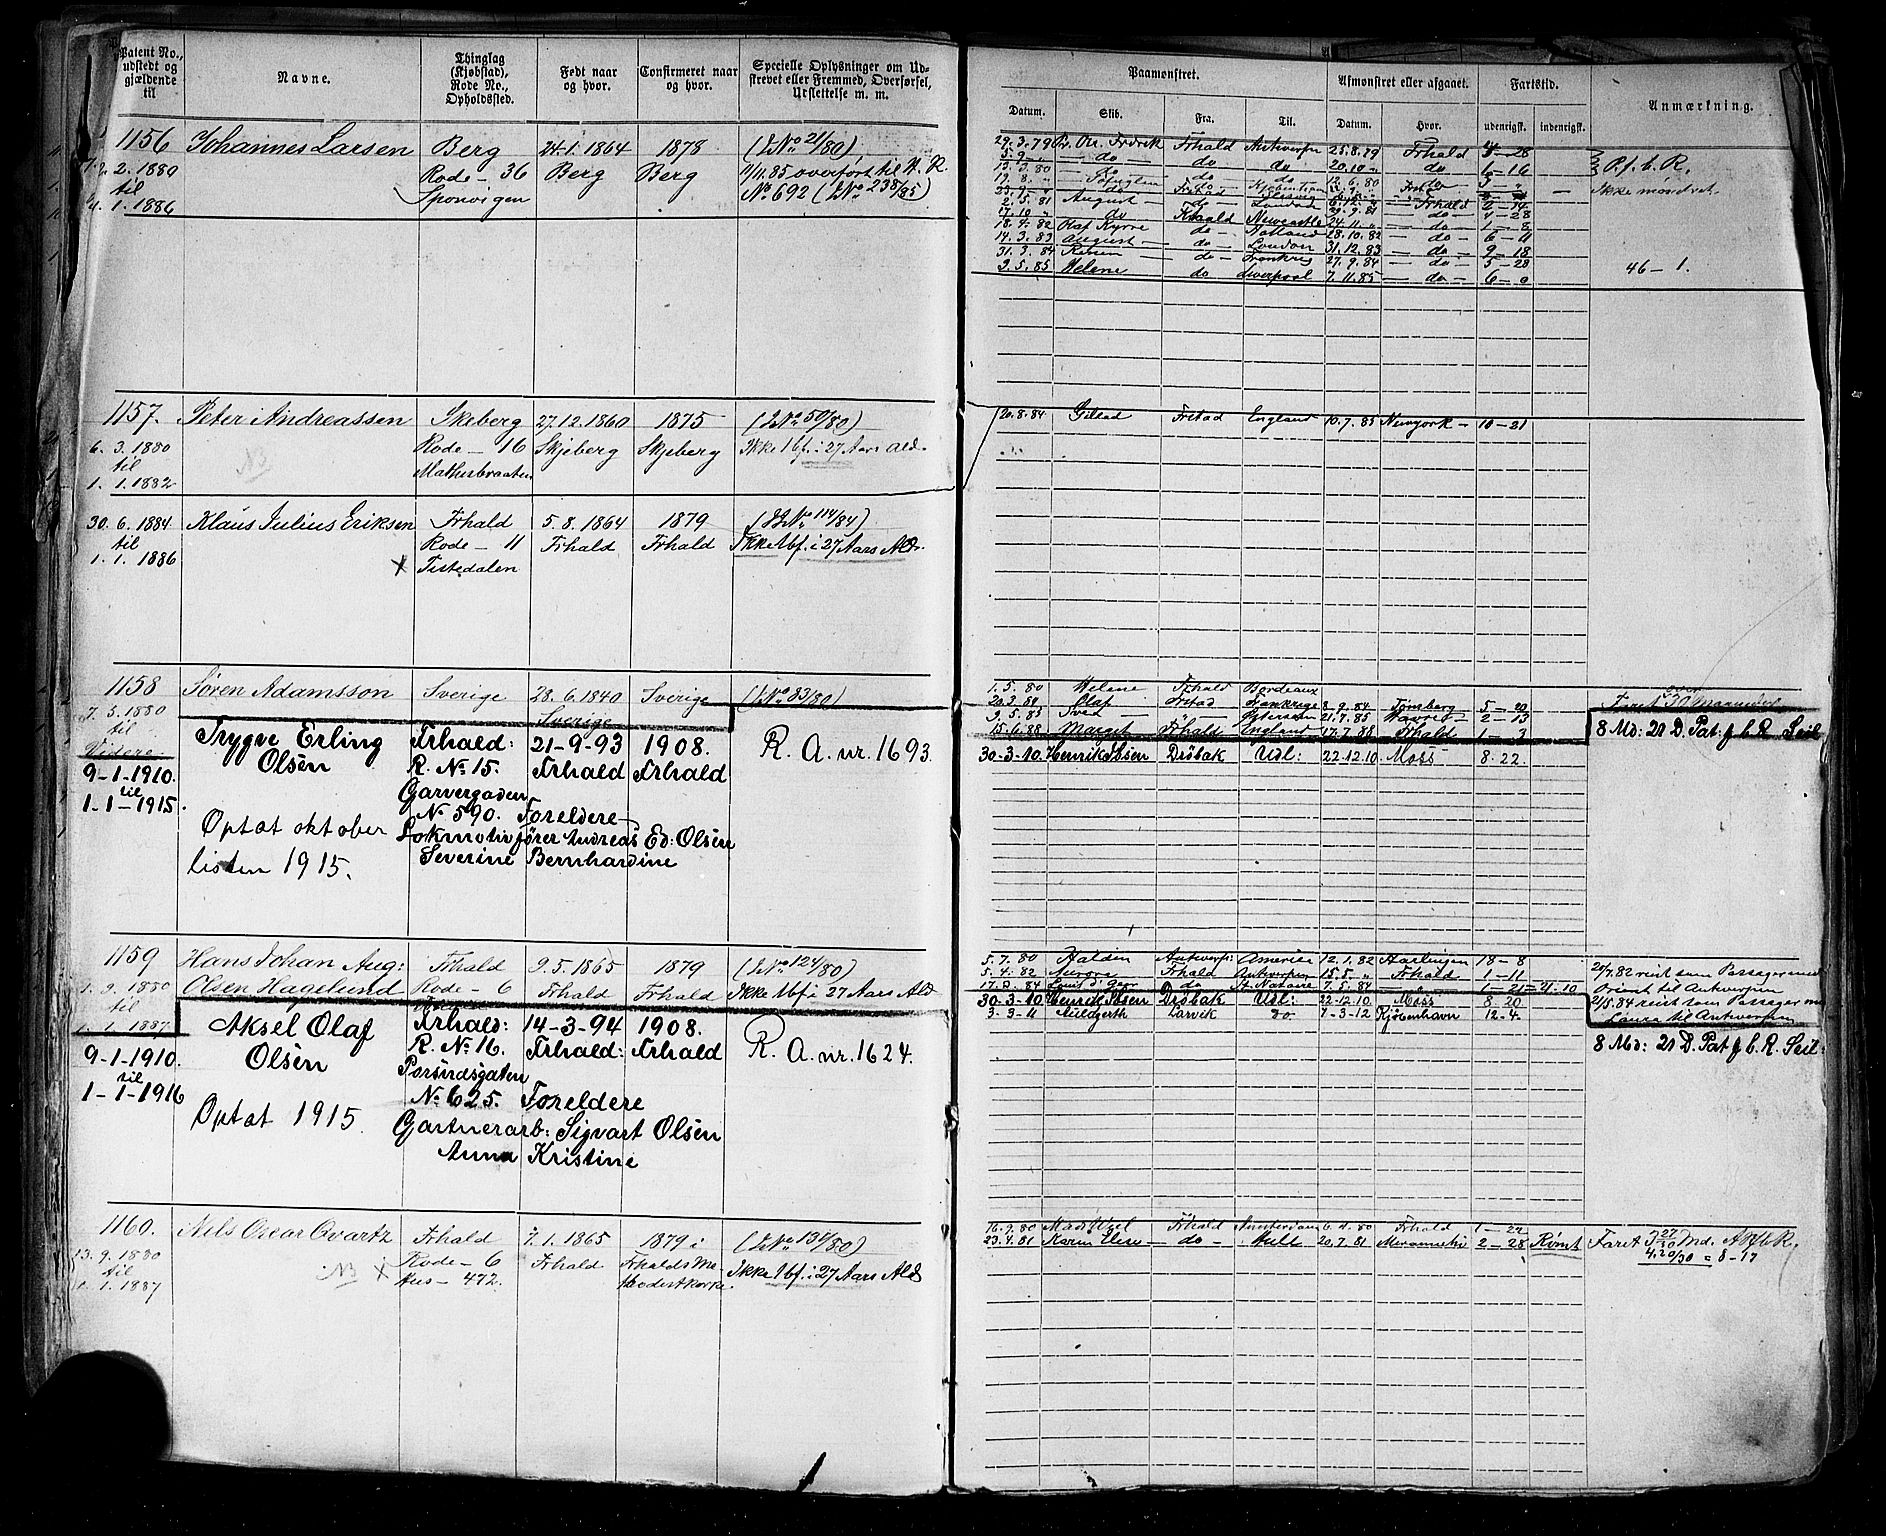 Patent No., udstedt og gjældende til
Navne.
Thinglag (Kjøbstad), Rode No., Opholdssted.
Født naar og hvor.
Confirmeret naar og hvor.
Specielle Oplysninger om Udskrevet eller Fremmed, Overførsel, Udslettelse m. m.
Paamønstret.
Afmønstret eller afgaaet.
Fartstid.
Anmærkning.
Datum.
Skib.
Fra.
Til.
Datum.
Hvor.
udenrigsk.
indenrigsk.
1156 Johannes Larsen Berg 24.1.1864 1878 (J No 21/80)
2. 1880 Rode - 36 Berg Berg 11/11.85 overført til H. R.
til Sponvigen No 692 (J No 238/85)
1. 1886
29.3.79 Pr. Osc. Fredrik Frhald Antwerpen 25.8.79 Frhald
do do do 20.10 do 1-16 P.f.b.R.
Ikke mønstret
2.5.81 August do London Frhald
17.10 do Frhald Newcastle do 4-28
18.4.82 Olaf Kyrre do 28.10.82 do 6-11
14.3.83 August do London 31.12.83 do 9-18
31.3.84 do Frankrig 27.9.84 do 5-28
3.5.85 Helene do Liverpool 7.11.85 do 6-0
46-1.
1157. Peter Andreassen Skeberg 27.12.1860 1875 (J No 50/80)
6. 3. 1880 Rode - 16 Skjeberg Skjeberg Ikke Ubf. i 27 Aars Ald.
til
1. 1. 1882
NB
20.8.84 Gilead Frstad England 10.7.85 Newyork - 10-21
30. 6. 1884 Klaus Julius Eriksen Frhald 5.8.1864 1879 (J No 114/84)
til Rode - 11 Frhald Frhald Ikke Ubf. i 27 Aars Ald.
1. 1. 1886 X Tistedalen
1158 Søren Adamsson Sverige 28.6.1840 Sverige (J No 33/80)
7. 3. 1880 Sverige
til
Videre
1.5.80 Helene Frhald Bordeaux
20.3.84 Olaf Frstad Frankrige 8.9.84 Tønsberg 5-20
9.5.85 21.7.85 2-13
15.6.88 Margit Frhald England 17.7.88 Frhald 1-3
Trygve Erling Frhald: 21-9-93 1908. R. A. nr. 1693.
Olsen R. No 15. Frhald Frhald
9-1-1910. Garvergaden
til
1-1-1915. No 590. Foreldre
Optat oktober Lokmotivfører Andreas Ed: Olsen
listen 1915. Severine Bernhardine
30-3-10. Henrik Ibsen Drøbak Udl: 22-12.10 Moss 8.22
8 Md: 21 D. Pat f b. R. Seil
1159 Hans Johan Aug: Frhald 9.5.1865 1879 (J No 124/80)
1. 9. 1880 Olsen Hagelund Rode - 6 Frhald Frhald Ikke Ubf i 27 Aars Ald
til
1. 1. 1887
5.7.80 Halden Antwerp: America 12.1.82 Harlingen 18-8
5.4.82 Aurora Frhald Antwerpen 15.5. Frhald 1-11
17.0.84 do St. Nazaire 7.5.84
20/7.82 reist som Passager med
Orient til Antwerpen
2/5.84 reist som Passager m
Laura til Antwerpen
Aksel Olaf Frhald: 14-3-94 1908. R. A. nr. 1624.
Olsen R. No 16. Frhald: Frhald
9-1-1910.
til
1-1-1916 No 625. Foreldre
Optat 1915. Gartnerarb: Sigvart Olsen
Anna Kristine
30-3-10. Henrik Ibsen Drøbak Udl: 22-12.10 Moss 8.20
3-3-11 Auldgerth Larvik do 7-3-12 Kjøbenhavn 12-4.
8 Md: 21 D. Pat f b. R. Seil:
1160. Nils Oscar Qvartz Frhald 7.1.1865 1879 i (J No 130/80)
13. 9. 1880 Rode - 6 Frhald Frhalds Me- Ikke Ubf. i 27 Aars Ald
til NB X Hus - 472. thodistkirke
1. 1. 1887
16.9.80 Frhald Amsterdam 6.11.80 Frhald 1-22
23.4.81 Karen Elise do Hull 20.7.81 2-28 Rømt
4.20/30 = 8-17